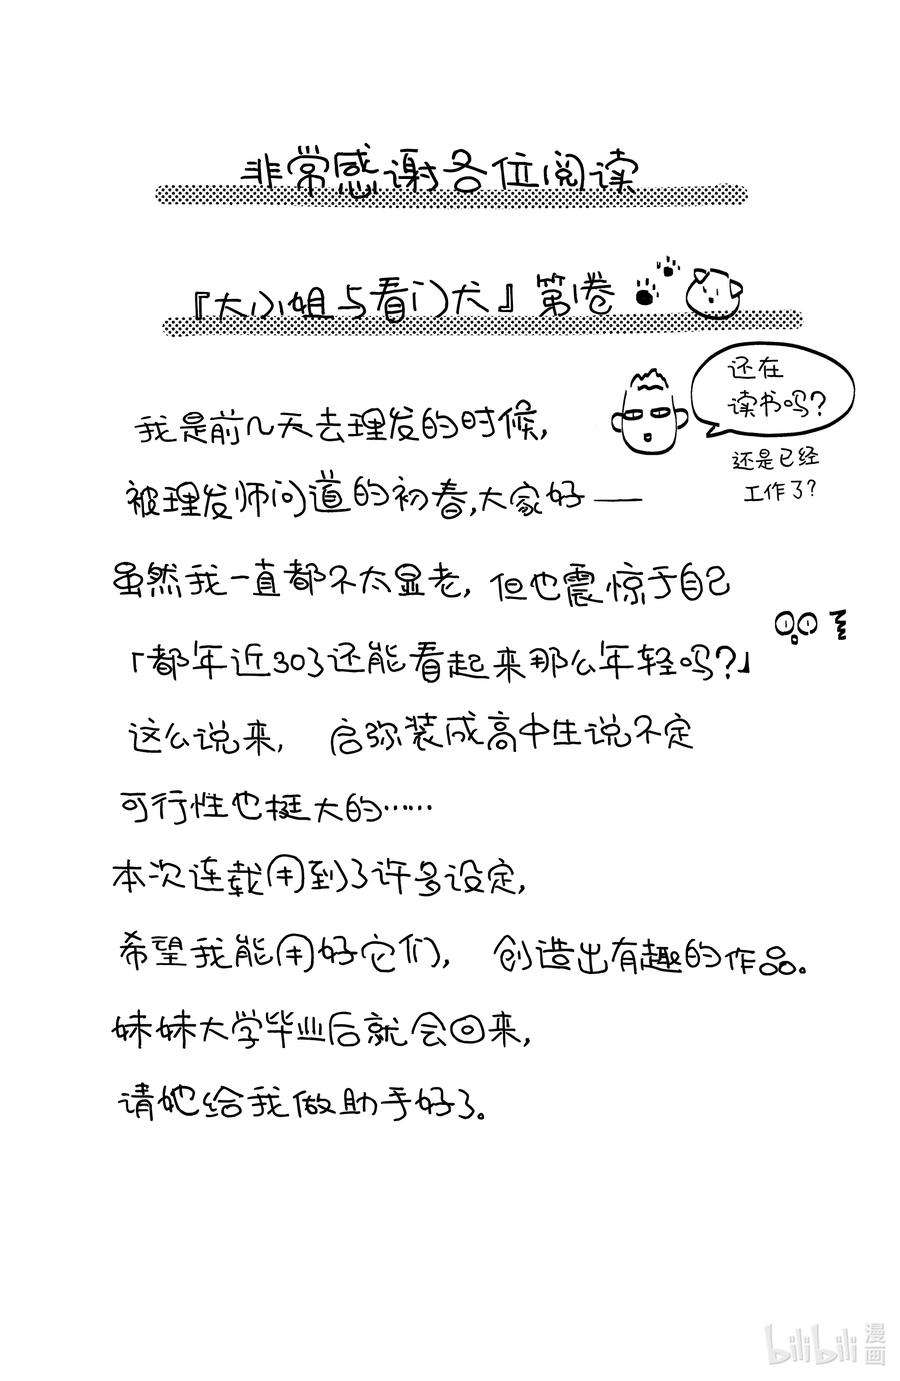 非常感谢各位阅读
『大小姐与看门犬』第1卷
我是前几天去理发的时候,
还在
读书吗?
还是已经
工作了?
被理发师问道的初春,大家好——
虽然我一直都不太显老,但也震惊于自己
「都年近30了还能看起来那么年轻吗?」
这么说来, 启弥装成高中生说不定
可行性也挺大的……
本次连载用到了许多设定,
希望我能用好它们, 创造出有趣的作品。
妹妹大学毕业后就会回来,
请她给我做助手好了。
bilibili 漫画